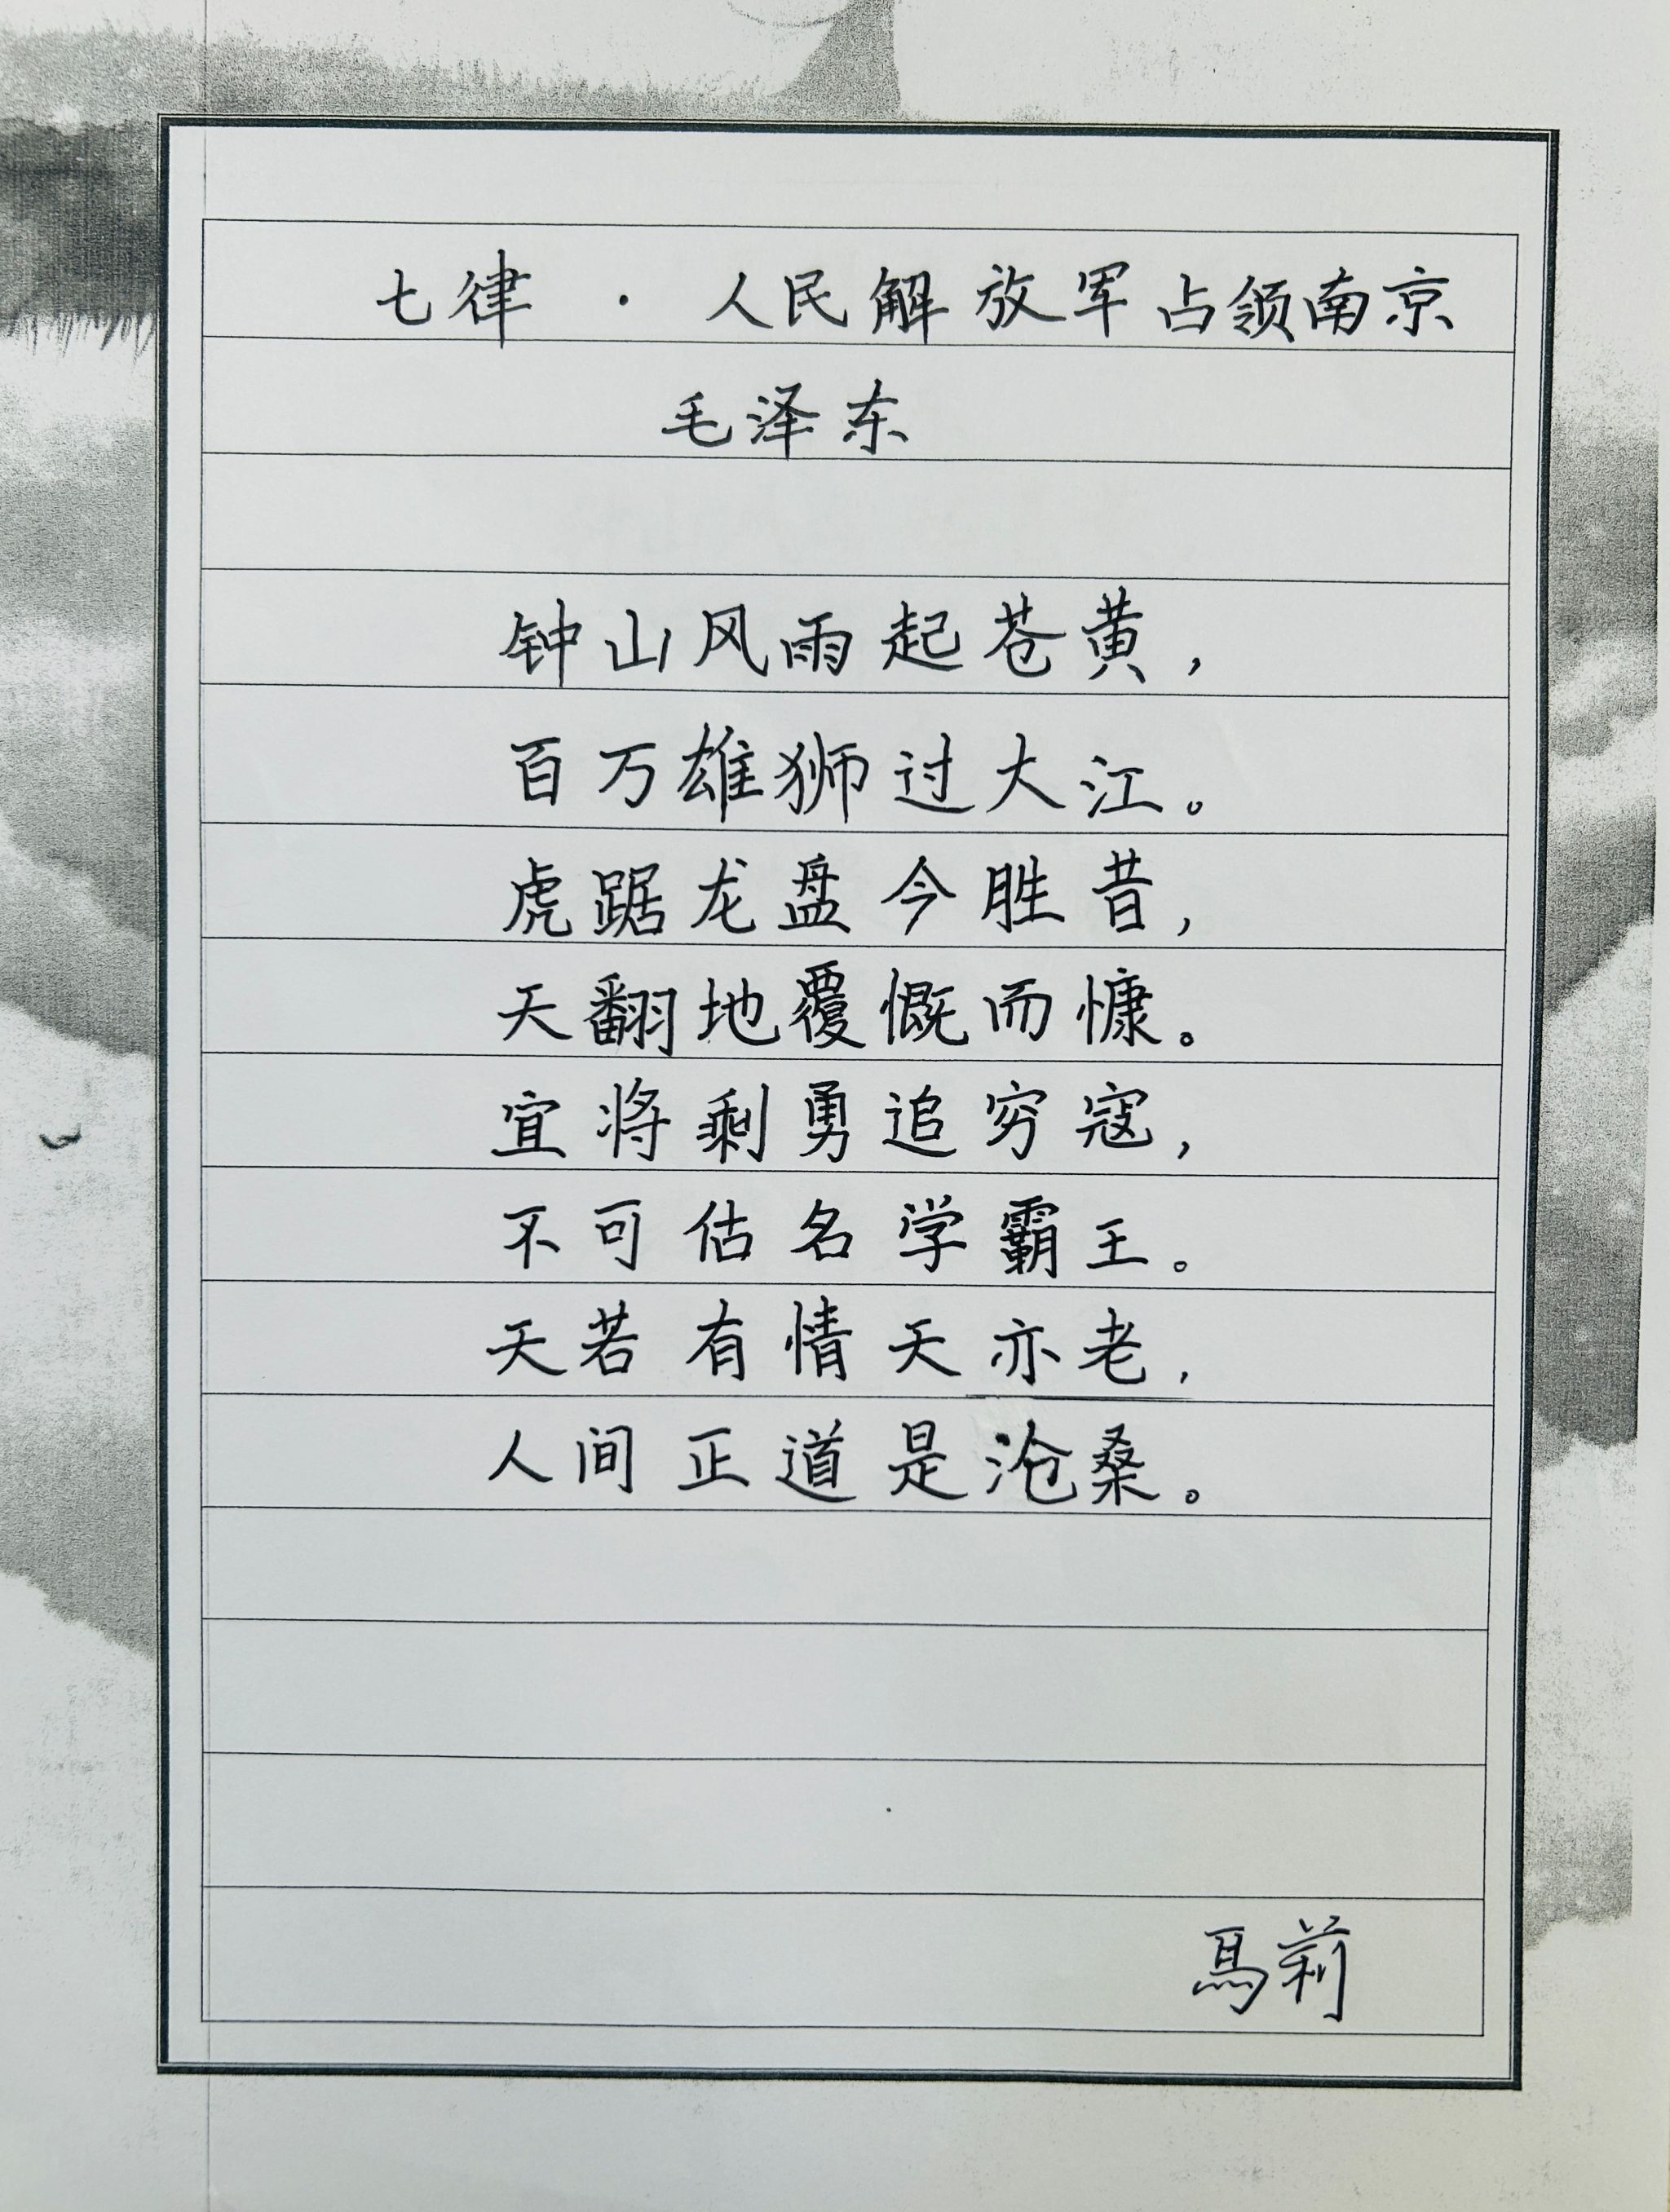 七律 · 人民解放军占领南京
毛泽东
钟山风雨起苍黄，
百万雄狮过大江。
虎踞龙盘今胜昔，
天翻地覆慨而慷。
宜将剩勇追穷寇，
不可估名学霸王。
天若有情天亦老，
人间正道是沧桑。
馬莉